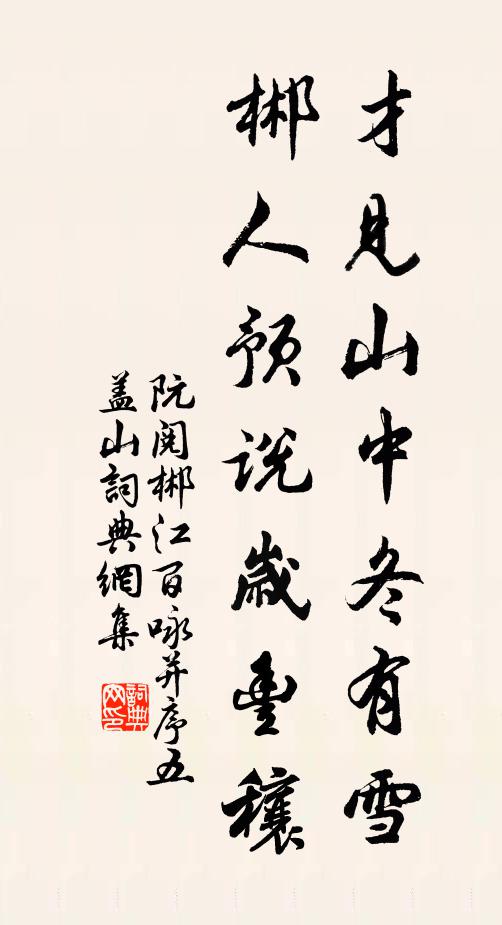 才見山中冬有雪
郴人預說歲豐穰
阮閱郴江百詠并序五
蓋山詞典網集
詞典网印